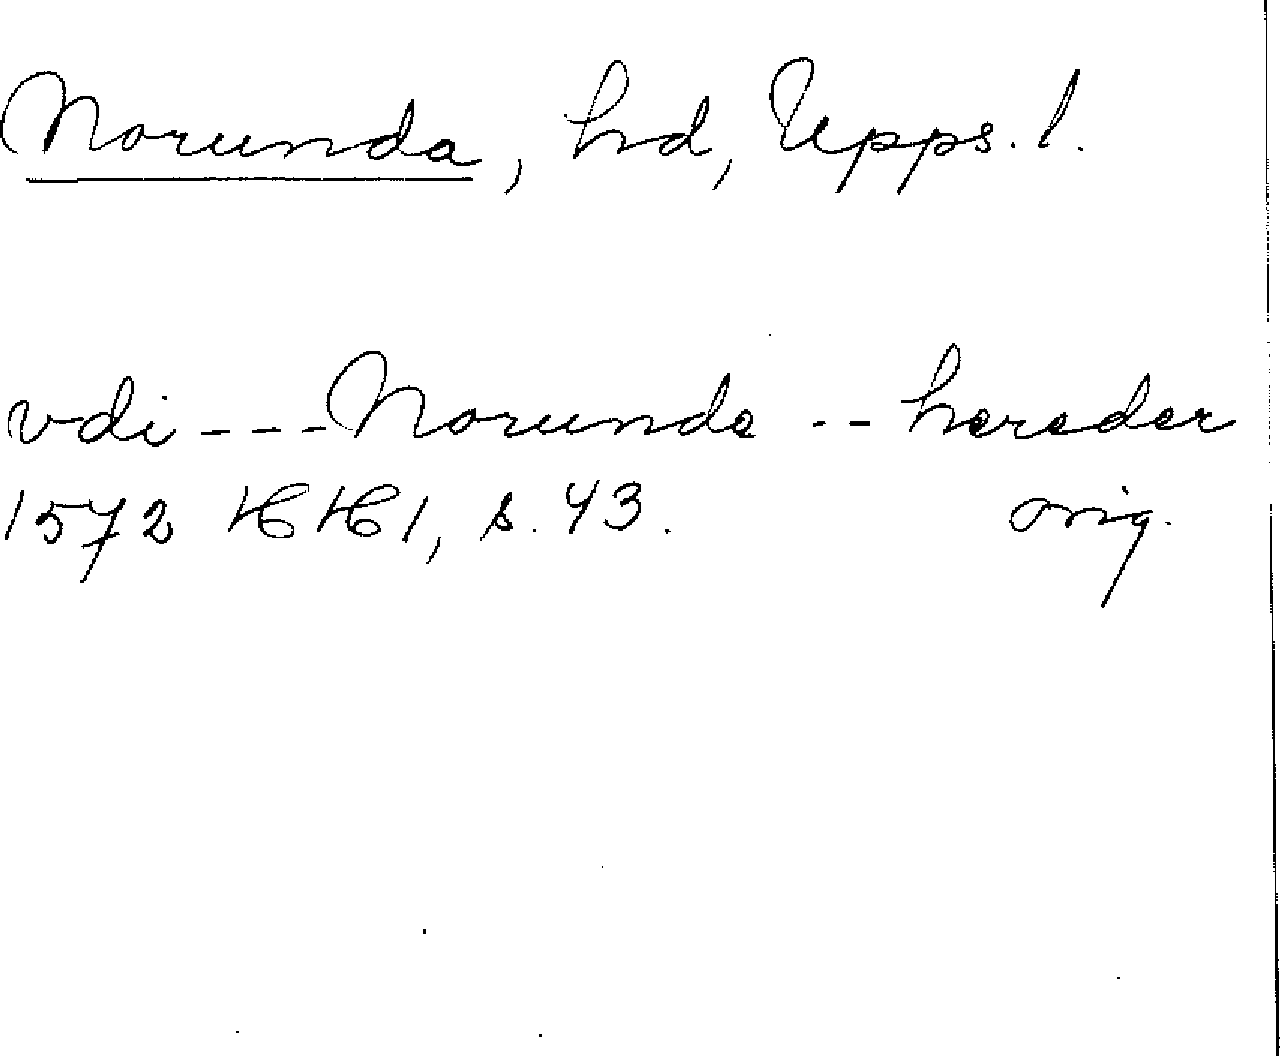 Norunda, hd, Upps. l.
vdi --- Norunde -- hereder
1572 HH1, s. 43. orig.